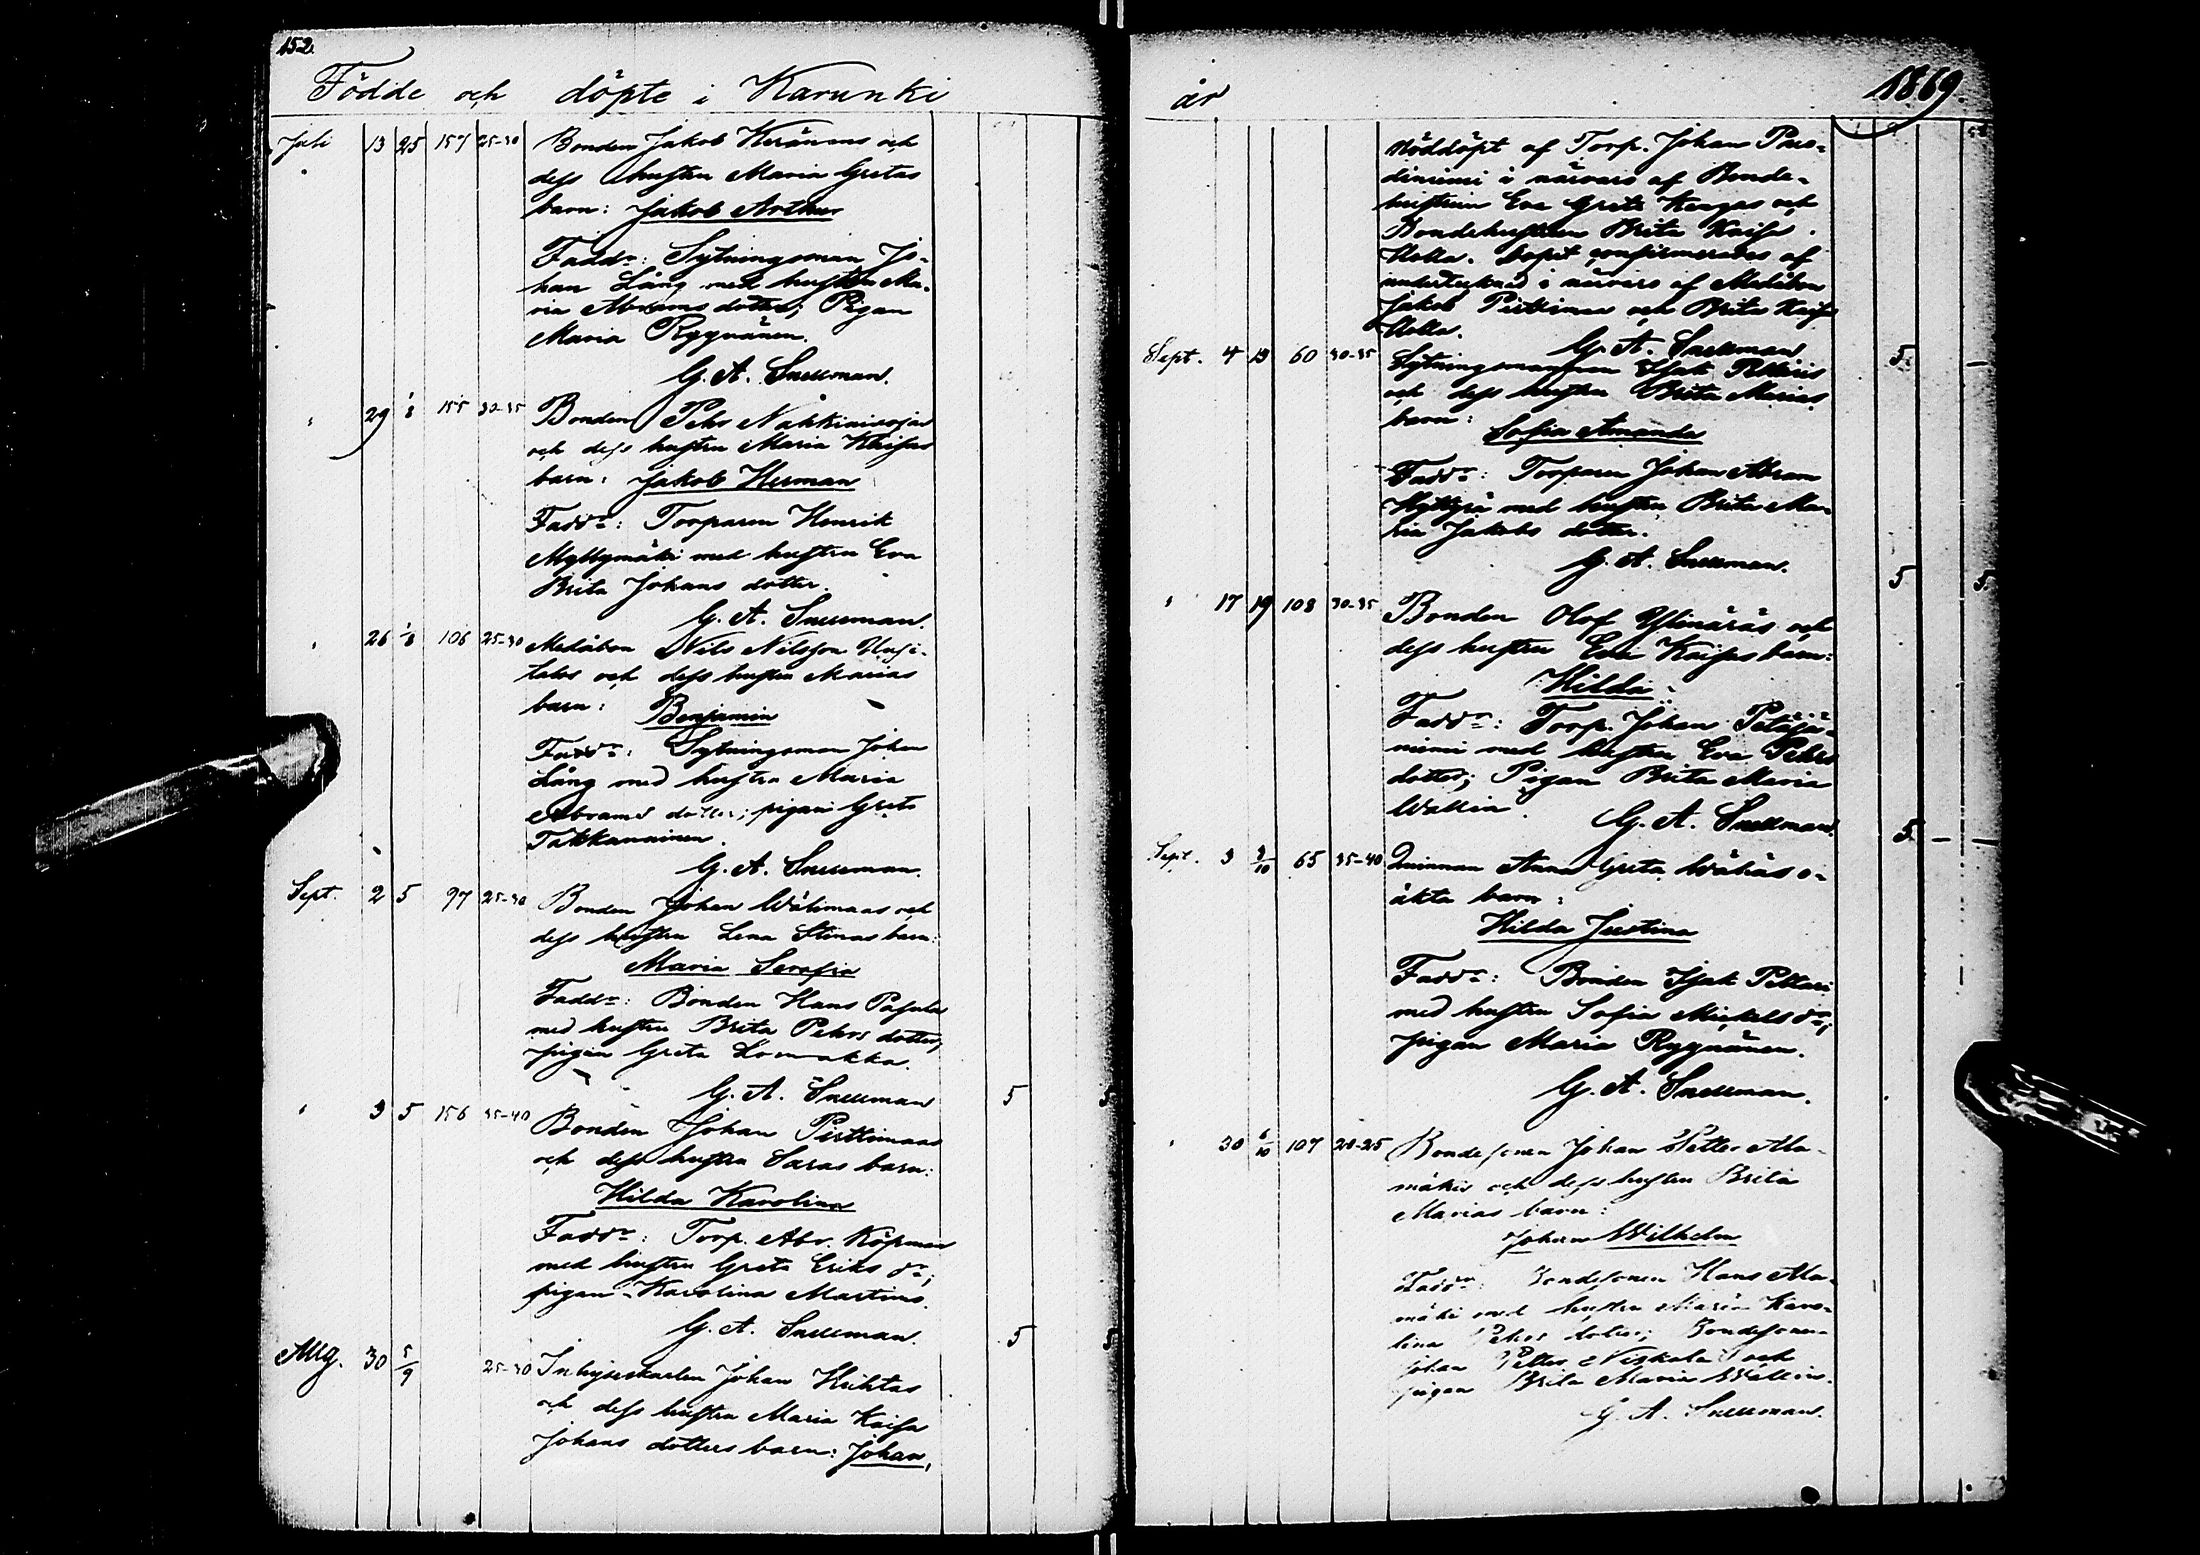 152.
Födde och döpte i Karunki
Juli 13 25 157 25-30 Bonden Jakob Keränens och
dess hustru Maria Gretas
barn: Jakob Arthur
Fadd.: Sytningsman Jo-
han Lång med hustru Ma-
ria Abrams dotter; Pigan
Maria Ryynänen.
G. A. Snellman.
29 1/8 155 30-35 Bonden Pehr
och dess hustru Maria Kaisas
barn: Jakob Herman
Fadd.: Torparen Henrik
Myllymäki med hustru Eva
Brita Johans dotter.
G. A. Snellman.
26 1/8 106 25-30 Nils Nilsson Uusi-
talos och dess hustru Marias
barn: Benjamin
Fadd.: Sytningsman Johan
Lång med hustru Maria
Abrams dotter; pigan Greta
G. A. Snellman.
Sept. 2 5 97 25-30 Bonden Johan Wälimaas och
dess hustru Lena Stinas barn:
Maria Serafia
Fadd.: Bonden Hans
med hustru Brita Pehrs dotter,
pigan Greta
G. A. Snellman 5 5
3 5 156 35-40 Bonden Johan Pirttimaas
och dess hustru Saras barn:
Hilda Karolina
Fadd.: Torp. Abr. Köpman
med hustru Greta Eriks dr;
pigan Karolina Martins.
G. A. Snellman. 5 5
Aug. 30 5/9 25-30 Inhyseskarlen Johan Huhtas
och dess hustru Maria Kaisa
Johans dotters barn: Johan,
år 1869.
Nöddöpt af Torp. Johans
i närvaro af Bonde-
hustrun Eva Greta Kangas och
Bondehustrun Brita Kaisa
Dopet confirmerades af
undertecknad i närvaro af
Jakob och Brita Kaisa
G. A. Snellman 5. —
Sept. 4 13 60 30-35 Sytningsmannen Isak
och dess hustru Brita Marias
barn:
Sofia Amanda
Fadd.: Torparen Johan Abram
med hustru Brita Ma-
ria Jakobs dotter.
G. A. Snellman. 5 5.
17 19 108 30-35 Bonden Olof Ylinäräs och
dess hustru Eva Kaisas barn:
Hilda
Fadd.: Torp. Johan Petäjä-
niemi med hustru Eva Pehrs
dotter; Pigan Brita Maria
Wallin.
G. A. Snellman. 5. — —
Sept. 3 3/10 65 35-40 Qvinnan Anna Greta o-
äkta barn:
Hilda Justina
Fadd.: Bonden Isak
med hustru Sofia Mickels dr;
pigan Maria Ryynänen.
G. A. Snellman.
30 6/10 107 20-25 Bondesonen Johan Petter Ala-
mäkis och dess hustru Brita
Marias barn:
Johan Wilhelm
Fadd.: Bondesonen Hans Ala-
mäki med hustru Maria Karo-
lina Pehrs dotter; Bondesonen
Johan Petter Niskala och
pigan Brita Maria Wallin.
G. A. Snellman.